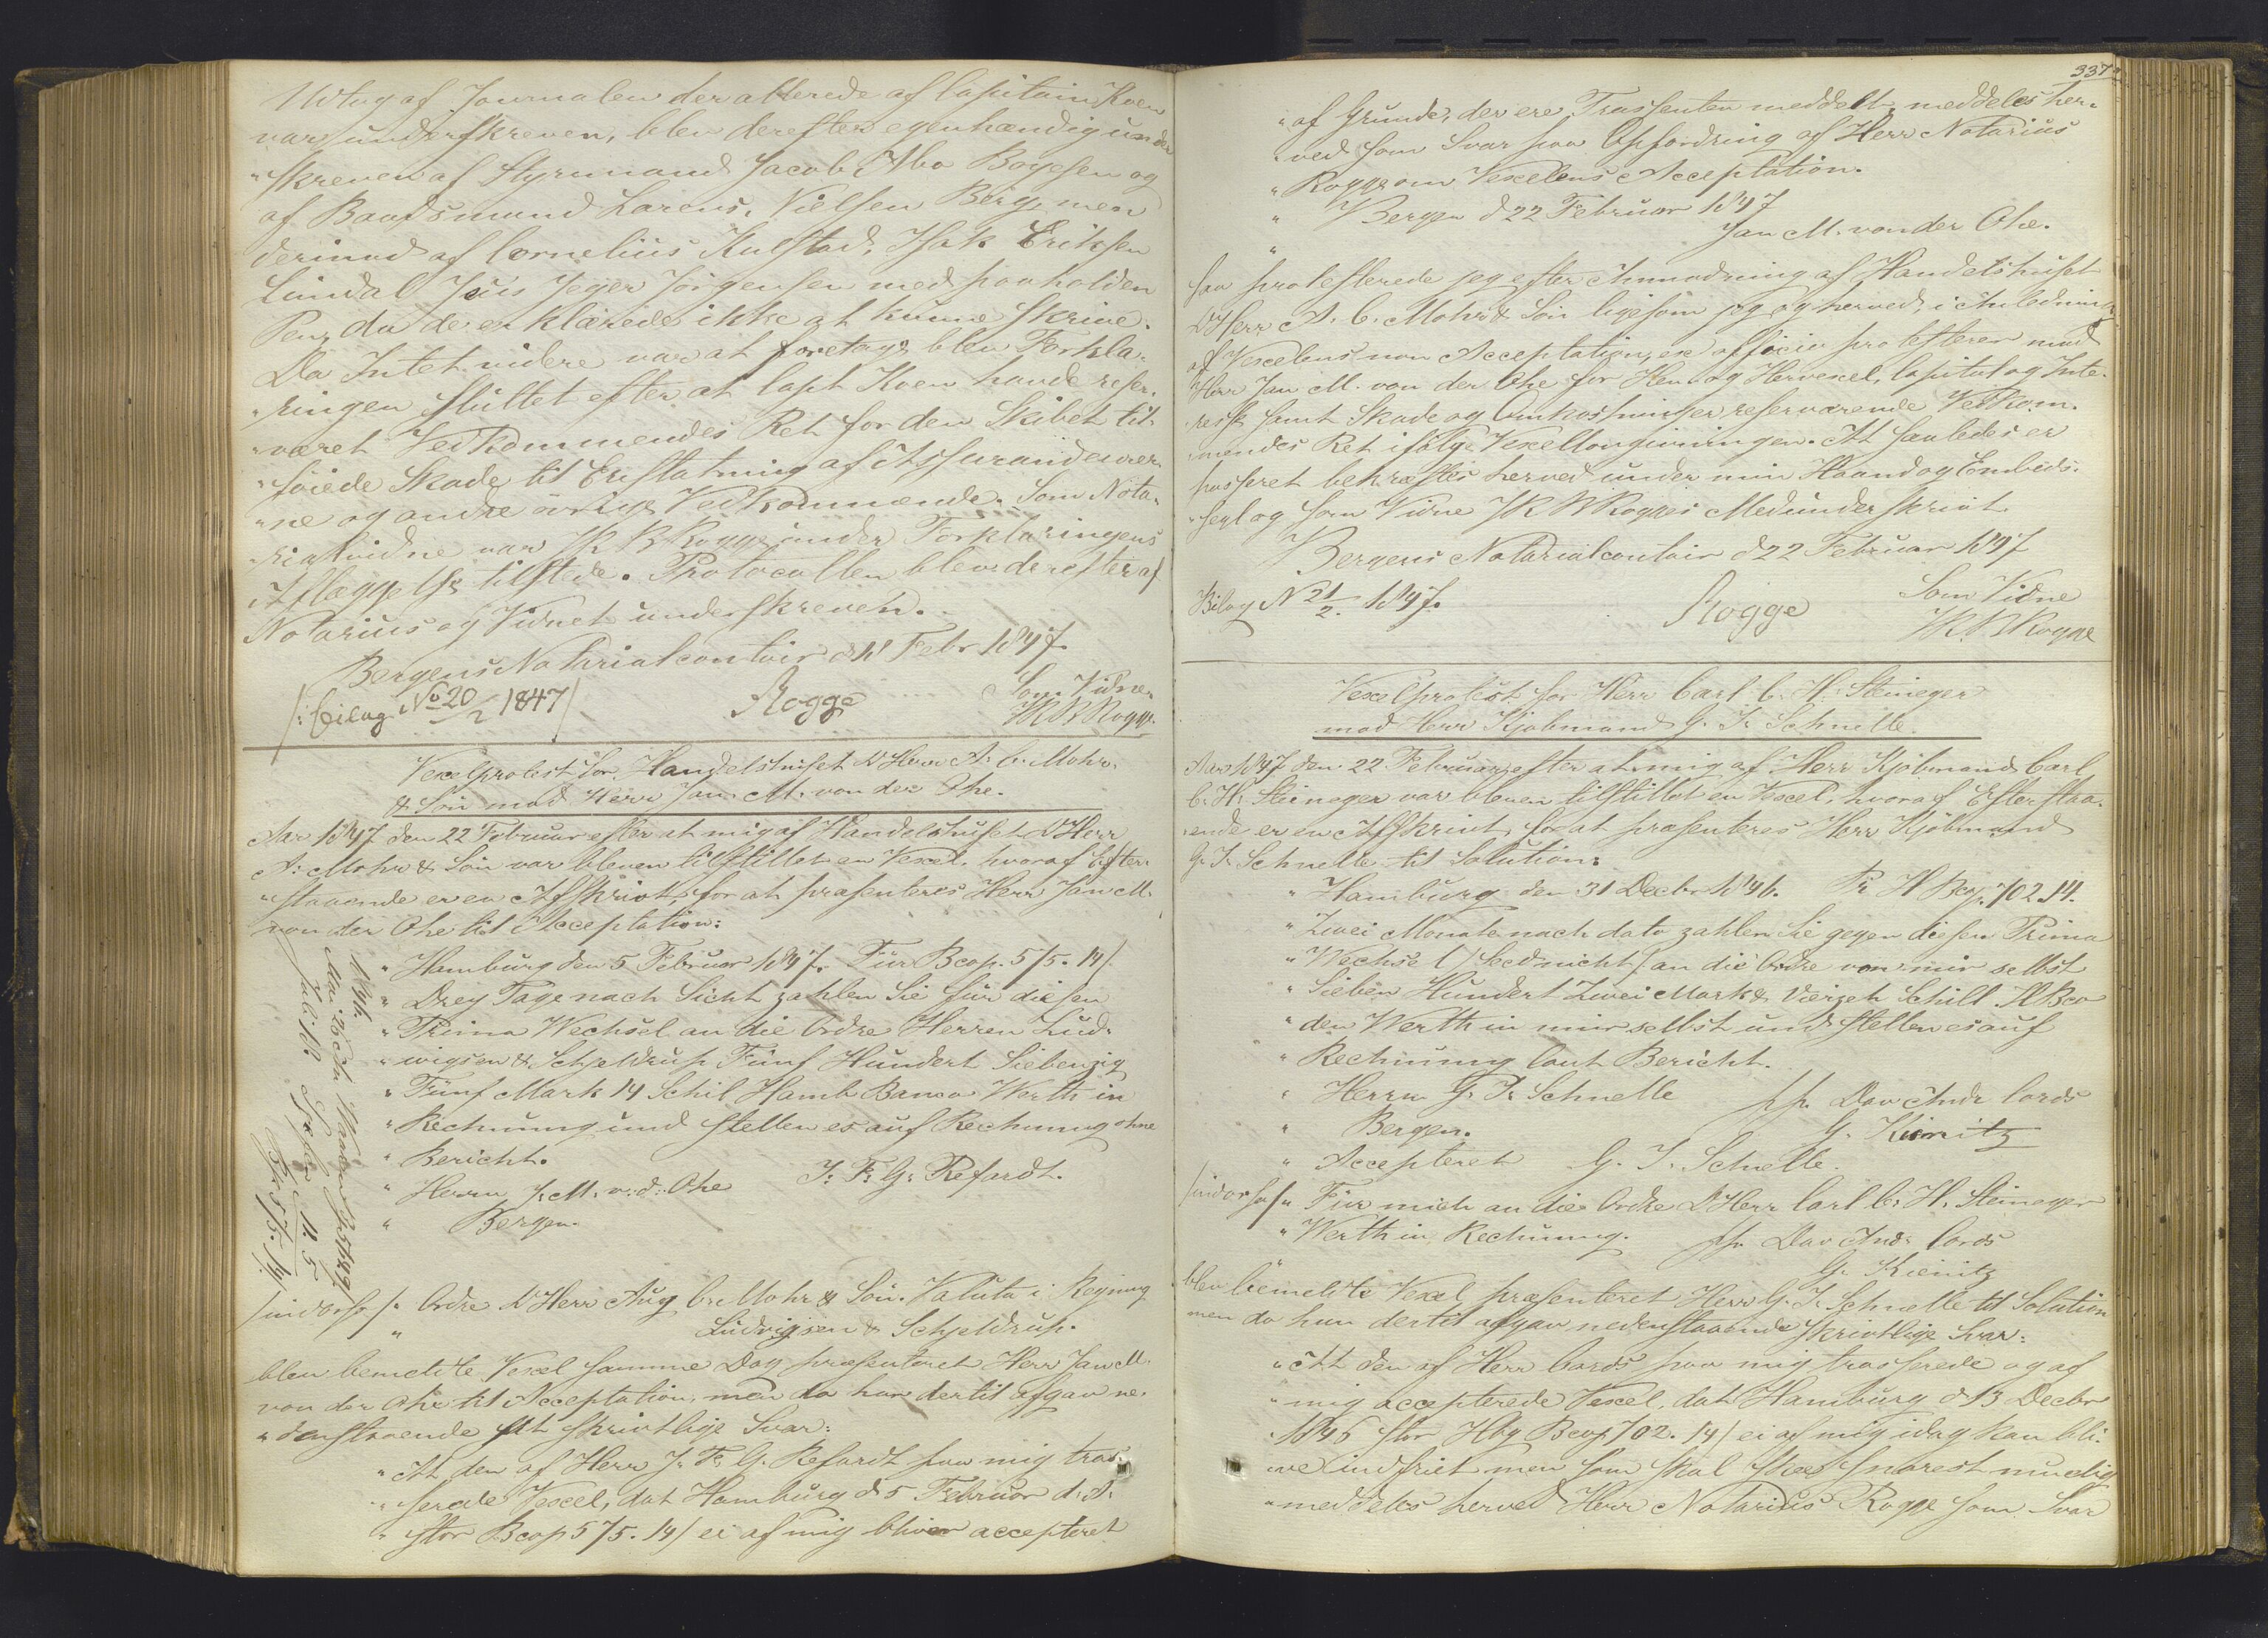 Udtog af Journalen der allerede af Capitain Koen
var underskreven, blev derefter egenhændig under
"skreven af Styrmand Jacob Abo Boyesen og
af Baadsmand Larens. Nielsen Berg, men
derimod af Cornelius Kulstad, Isak Eriksen
Lindal Jens Jeger Jörgensen med paaholden
Pen, da de erklærede ikke at kunne skrive.
Da Intet videre var at foretage blev Forkla-
"ringen sluttet efter at Capt Koen havde reser-
"veret Vedkommendes Ret for den Skibet til-
"föiede Skade til Erstatning af Assurandeurer-
"ne og andre övrige Vedkommende. Som Nota-
"rialvidne var JR B Rogge under Forklaringens
Aflæggelse tilstede. Protocollen blev derefter af
Notarius og Vidnet underskreven.
Bergens Notarialcontoir d 18 Febr 1847.
/: bilag No 20/2 1847/ Rogge Som Vidne
JR B Rogge
Vexelprotest for Handelshuset D'Herr A. C. Mohr
& Sön mod Herr Jan M. von der Ohe.
Aar 1847 den 22 Februar efter at mig af Handelshuset D'Herr
A: Mohr & Sön var bleven tilstillet en Vexel, hvoraf Efter-
"staaende er en Afskrivt, for at præsenteres Herr Jan M.
von der Ohe til Acceptation:
" Hamburg den 5 Februar 1847. Für Bco 575. 14/
" Drey Tage nach Sicht zahlen Sie für diesen
" Prima Wechsel an die Ordre Herren Lud-
" wigsen & Schjeldrup Fünf Hundert Siebenzig
" Fünf Mark 14 Schil Hamb Banco Werth in
" Rechnung und stellen es auf Rechnung ohne
" Bericht.
" Herrn J. M. v: d: Ohe J. F. G. Refardt.
" Bergen.
1846.
/indorso/ " Ordre D'Herr Aug C. Mohr & Sön. Valuta i Regning
" Ludvigsen & Schjeldrup.
blev bemeldte Vexel samme Dag præsenteret Herr Jan M.
von der Ohe til Acceptation, men da han dertil afgav ne-
"denstaaende skrivtlige Svar:
" At den af Herr J. F. G. Refardt paa mig tras-
" serede Vexel, dat Hamburg d 5 Februar d: A:
" stor Bco 575. 14/ ei af mig bliver accepteret
337
" af Grunde, der ere Trassenten meddelt, meddeles her-
" ved som Svar paa Opfordring af Herr Notarius
" Rogge om Vexelens Acceptation.
" Bergen d 22 Februar 1847
" Jan M. von der Ohe.
saa protesterede jeg efter Anmodning af Handelshuset
D'Herr A. C. Mohr & Sön ligesom jeg og herved, i Anledning
af Vexelens non Acceptation, ex officio protesterer mod
Herr Jan M. von der Ohe for Hen og Hervexel, Capital og Inte-
resse samt Skade og Omkostninger reserverende Vedkom-
"mendes Ret ifölge Vexellovgivningen. At saaledes er
passeret bekræftes herved under min Haand og Embeds-
"segl og som Vidne JR B Rogges Medunderskrivt.
Bergens Notarialcontoir d 22 Februar 1847
Bilag N 21/2. 1847. Rogge Som Vidne
JR. B Rogge
Vexelprotest for Herr Carl C. H. Steineger
mod Herr Kjöbmand G. J. Schnelle.
Aar 1847 den 22 Februar efter at mig af Herr Kjöbmand Carl
C. H. Steineger var bleven tilstillet en Vexel, hvoraf Efterstaa-
"ende er en Afskrivt, for at præsenteres Herr Kjöbmand
G. J. Schnelle til Solution:
" Hamburg den 31 Decbr 1846. Pr H Bco 702. 14.
" Zwei Monate nach dato zahlen Sie gegen diesen Prima
" Wechsel (Secd nicht) an die Ordre von mir selbst
" Sieben Hundert Zwei Mark & Vierzeh Schill. H Bco
" den Werth in mir selbst und stellen es auf
" Rechnung laut Bericht.
" Herrn G. J. Schnelle ppr. Dav Andr Cords
" Bergen. G. Kienitz
" Accepteret G. J. Schnelle.
/indorso/ " Für mich an die Ordre D'Herr Carl C. H. Steineger
" Werth in Rechnung. ppr. Dav Andr Cords
" G. Kienitz
blev bemeldte Vexel præsenteret Herr G. J. Schnelle til Solution
men da han dertil afgav nedenstaaende skrivtlige Svar:
" At den af Herr Cords paa mig trasserede og af
" mig accepterede Vexel, dat Hamburg d 13 Decbr
" 1846 stor Hbg Bco 702. 14/ ei af mig idag kan bli-
" ve indfriet men som skal skee snarest muelig
" meddeles herved Herr Notarius Rogge som Svar